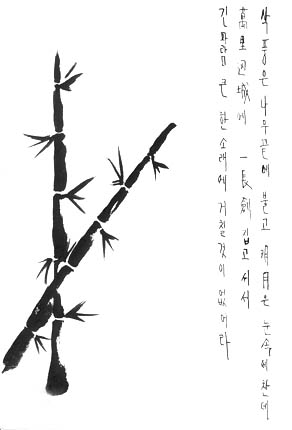 삭풍은 나무끝에 불고 明月은 눈속에 찬데
萬里边城에 一長劍 집고 서서
긴파람 큰 한소래에 거칠것이 없어라